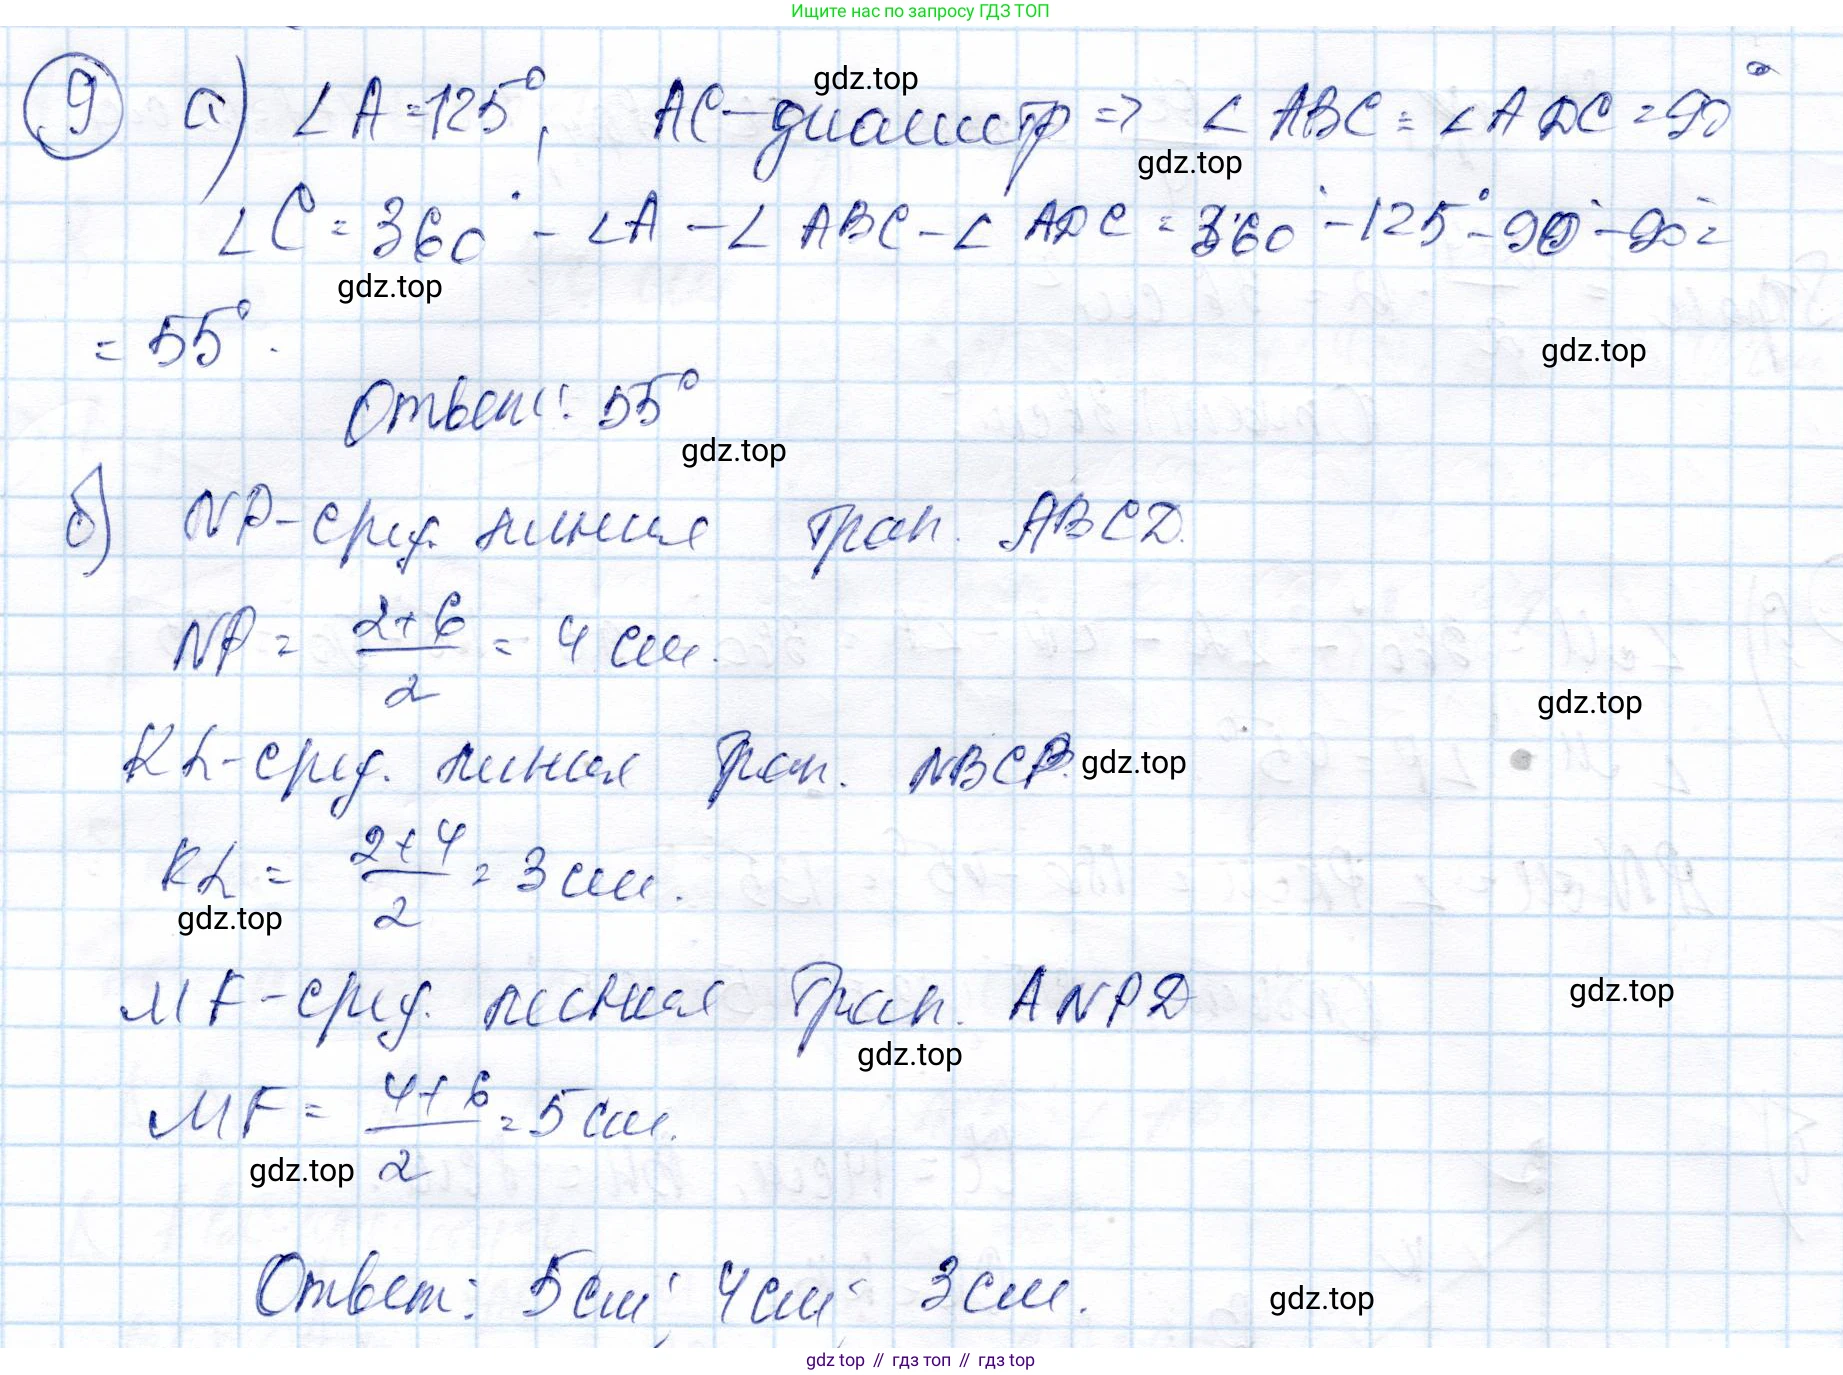 Ищите нас по запросу ГДЗ ТОП
9 а) ∠A=125°, AC-диаметр => ∠ABC = ∠ADC = 90°
gdz.top
gdz.top
∠C = 360° - ∠A - ∠ABC - ∠ADC = 360° - 125° - 90° - 90° =
gdz.top
= 55°.
gdz.top
Ответ: 55°
gdz.top
б) NP-сред. линия трап. ABCD.
NP = (2+6)/2 = 4 см.
gdz.top
KL-сред. линия трап. NBCP.
gdz.top
KL = (2+4)/2 = 3 см.
gdz.top
MF-сред. линия трап. ANPD
gdz.top
gdz.top
MF = (4+6)/2 = 5 см.
gdz.top
Ответ: 5 см; 4 см; 3 см.
gdz.top
gdz top // гдз топ // гдз top